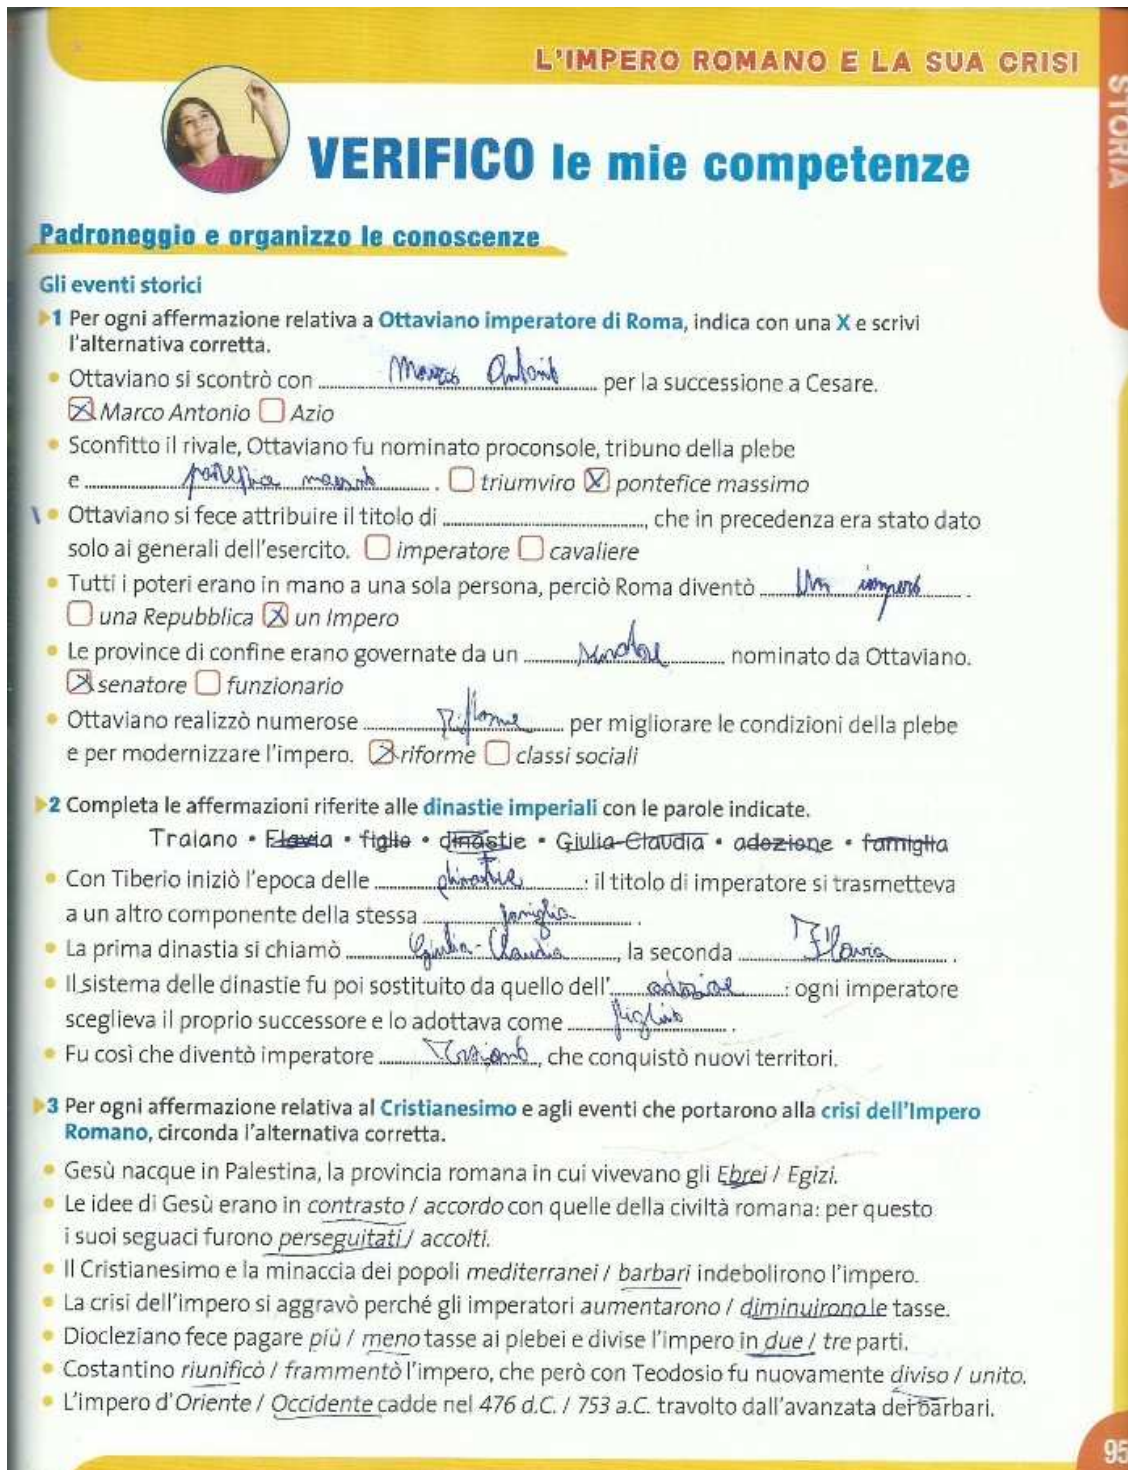 L'IMPERO ROMANO E LA SUA CRISI
STORIA
VERIFICO le mie competenze
Padroneggio e organizzo le conoscenze
Gli eventi storici
1 Per ogni affermazione relativa a Ottaviano imperatore di Roma, indica con una X e scrivi
l'alternativa corretta.
• Ottaviano si scontrò con Marco Antonio per la successione a Cesare.
☒ Marco Antonio ☐ Azio
• Sconfitto il rivale, Ottaviano fu nominato proconsole, tribuno della plebe
e ........ . ☐ triumviro ☒ pontefice massimo
• Ottaviano si fece attribuire il titolo di ........, che in precedenza era stato dato
solo ai generali dell'esercito. ☐ imperatore ☐ cavaliere
• Tutti i poteri erano in mano a una sola persona, perciò Roma diventò Un impero .
☐ una Repubblica ☒ un Impero
• Le province di confine erano governate da un senatore nominato da Ottaviano.
☒ senatore ☐ funzionario
• Ottaviano realizzò numerose Riforme per migliorare le condizioni della plebe
e per modernizzare l'impero. ☒ riforme ☐ classi sociali
2 Completa le affermazioni riferite alle dinastie imperiali con le parole indicate.
Traiano • Flavia • figlio • dinastie • Giulia-Claudia • adozione • famiglia
• Con Tiberio iniziò l'epoca delle dinastie : il titolo di imperatore si trasmetteva
a un altro componente della stessa famiglia .
• La prima dinastia si chiamò Giulia-Claudia, la seconda Flavia .
• Il sistema delle dinastie fu poi sostituito da quello dell'adozione : ogni imperatore
sceglieva il proprio successore e lo adottava come figlio .
• Fu così che diventò imperatore Traiano, che conquistò nuovi territori.
3 Per ogni affermazione relativa al Cristianesimo e agli eventi che portarono alla crisi dell'Impero
Romano, circonda l'alternativa corretta.
• Gesù nacque in Palestina, la provincia romana in cui vivevano gli Ebrei / Egizi.
• Le idee di Gesù erano in contrasto / accordo con quelle della civiltà romana: per questo
i suoi seguaci furono perseguitati / accolti.
• Il Cristianesimo e la minaccia dei popoli mediterranei / barbari indebolirono l'impero.
• La crisi dell'impero si aggravò perché gli imperatori aumentarono / diminuirono le tasse.
• Diocleziano fece pagare più / meno tasse ai plebei e divise l'impero in due / tre parti.
• Costantino riunificò / frammentò l'impero, che però con Teodosio fu nuovamente diviso / unito.
• L'impero d'Oriente / Occidente cadde nel 476 d.C. / 753 a.C. travolto dall'avanzata dei barbari.
95